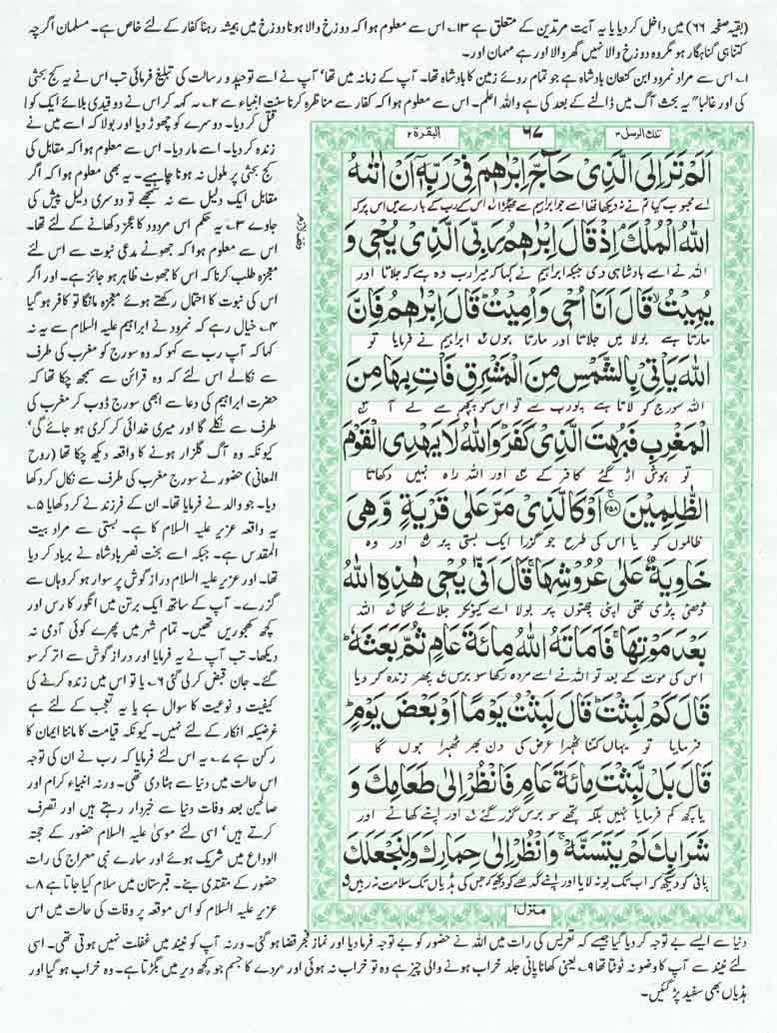 (بقیہ صفحہ ۶۶) میں داخل کر دیا یا یہ آیت مرتدین کے متعلق ہے ۱۳؎ اس سے معلوم ہوا کہ دوزخ والا ہونا دوزخ میں ہمیشہ رہنا کفار کے لئے خاص ہے۔ مسلمان اگرچہ
کتنا ہی گناہگار ہو مگر وہ دوزخ والا نہیں گھر والا اور ہے مہمان اور۔
۱؎ اس سے مراد نمرود ابن کنعان بادشاہ ہے جو تمام روئے زمین کا بادشاہ تھا۔ آپ کے زمانہ میں تھا' آپ نے اسے توحید و رسالت کی تبلیغ فرمائی تب اس نے یہ کج بحثی
کی اور غالباً" یہ بحث آگ میں ڈالنے کے بعد کی ہے واللہ اعلم۔ اس سے معلوم ہوا کہ کفار سے مناظرہ کرنا سنت انبیاء ہے ۲؎ یہ کہہ کر اس نے دو قیدی بلائے ایک کو
قتل کر دیا۔ دوسرے کو چھوڑ دیا اور بولا کہ اسے میں نے
زندہ کر دیا۔ اسے مار دیا۔ اس سے معلوم ہوا کہ مقابل کی
کج بحثی پر ملول نہ ہونا چاہیے۔ یہ بھی معلوم ہوا کہ اگر
مقابل ایک دلیل سے نہ سمجھے تو دوسری دلیل پیش کی
جاوے ۳؎ یہ حکم اس مردود کا عجز دکھانے کے لئے تھا۔
اس سے معلوم ہوا کہ جھوٹے مدعی نبوت سے اس لئے
معجزہ طلب کرنا کہ اس کا جھوٹ ظاہر ہو جائز ہے۔ اور اگر
اس کی نبوت کا احتمال رکھتے ہوئے معجزہ مانگا تو کافر ہو گیا
۴؎ خیال رہے کہ نمرود نے ابراہیم علیہ السلام سے یہ نہ
کہا کہ آپ رب سے کہو کہ وہ سورج کو مغرب کی طرف
سے نکالے اس لئے کہ وہ قرائن سے سمجھ چکا تھا کہ
حضرت ابراہیم کی دعا سے ابھی سورج ڈوب کر مغرب کی
طرف سے نکلے گا اور میری خدائی کر کری ہو جائے گی'
کیونکہ وہ آگ گلزار ہونے کا واقعہ دیکھ چکا تھا (روح
المعانی) حضور نے سورج مغرب کی طرف سے نکال کر دکھا
دیا۔ جو والد نے فرمایا تھا۔ ان کے فرزند نے کر دکھایا ۵؎
یہ واقعہ عزیر علیہ السلام کا ہے۔ بستی سے مراد بیت
المقدس ہے۔ جبکہ اسے بخت نصر بادشاہ نے برباد کر دیا
تھا۔ اور عزیر علیہ السلام دراز گوش پر سوار ہو کر وہاں سے
گزرے۔ آپ کے ساتھ ایک برتن میں انگور کا رس اور
کچھ کھجوریں تھیں۔ تمام شہر میں پھرے کوئی آدمی نہ
دیکھا۔ تب آپ نے یہ فرمایا اور دراز گوش سے اتر کر سو
گئے۔ جان قبض کر لی گئی ۶؎ یا تو اس میں زندہ کرنے کی
کیفیت و نوعیت کا سوال ہے یا یہ تعجب کے لئے ہے
غرضیکہ انکار کے لئے نہیں۔ کیونکہ قیامت کا ماننا ایمان کا
رکن ہے ۷؎ یہ اس لئے فرمایا کہ رب نے ان کی توجہ
اس حالت میں دنیا سے ہٹا دی تھی۔ ورنہ انبیاء کرام اور
صالحین بعد وفات دنیا سے خبردار رہتے ہیں اور تصرف
کرتے ہیں' اسی لئے موسیٰ علیہ السلام حضور کے حجتہ
الوداع میں شریک ہوئے اور سارے نبی معراج کی رات
حضور کے مقتدی بنے۔ قبرستان میں سلام کیا جاتا ہے ۸؎
عزیر علیہ السلام کو اس موقعہ پر وفات کی حالت میں اس
تلك الرسل ۳
۶۷
البقرة ۲
اَلَمْ تَرَ اِلَى الَّذِیْ حَآجَّ اِبْرٰهٖمَ فِیْ رَبِّهٖۤ اَنْ اٰتٰىهُ
اے محبوب کیا تم نے نہ دیکھا تھا اسے جو ابراہیم سے جھگڑا اس کے رب کے بارے میں اس پر کہ
اللّٰهُ الْمُلْكَ ۘ اِذْ قَالَ اِبْرٰهٖمُ رَبِّیَ الَّذِیْ یُحْیٖ وَ
اللہ نے اسے بادشاہی دی جبکہ ابراہیم نے کہا کہ میرا رب وہ ہے کہ جلاتا اور
یُمِیْتُ ۙ قَالَ اَنَا اُحْیٖ وَ اُمِیْتُ ؕ قَالَ اِبْرٰهٖمُ فَاِنَّ
مارتا ہے بولا میں جلاتا اور مارتا ہوں ابراہیم نے فرمایا تو
اللّٰهَ یَاْتِیْ بِالشَّمْسِ مِنَ الْمَشْرِقِ فَاْتِ بِهَا مِنَ
اللہ سورج کو لاتا ہے پورب سے تو اس کو پچھم سے لے آ
الْمَغْرِبِ فَبُهِتَ الَّذِیْ كَفَرَ ؕ وَ اللّٰهُ لَا یَهْدِی الْقَوْمَ
تو ہوش اڑ گئے کافر کے اور اللہ راہ نہیں دکھاتا
الظّٰلِمِیْنَ ۝۲۵۸ اَوْ كَالَّذِیْ مَرَّ عَلٰى قَرْیَةٍ وَّ هِیَ
ظالموں کو یا اس کی طرح جو گزرا ایک بستی پر اور وہ
خَاوِیَةٌ عَلٰى عُرُوْشِهَا ۚ قَالَ اَنّٰى یُحْیٖ هٰذِهِ اللّٰهُ
ڈھئی پڑی تھی اپنی چھتوں پر بولا اسے کیونکر جلائے گا اللہ
بَعْدَ مَوْتِهَا ۚ فَاَمَاتَهُ اللّٰهُ مِائَةَ عَامٍ ثُمَّ بَعَثَهٗ ؕ
اس کی موت کے بعد تو اللہ نے اسے مردہ رکھا سو برس پھر زندہ کر دیا
قَالَ كَمْ لَبِثْتَ ؕ قَالَ لَبِثْتُ یَوْمًا اَوْ بَعْضَ یَوْمٍ ؕ
فرمایا تو یہاں کتنا ٹھہرا عرض کی دن بھر ٹھہرا ہوں گا
قَالَ بَلْ لَّبِثْتَ مِائَةَ عَامٍ فَانْظُرْ اِلٰى طَعَامِكَ وَ
یا کچھ کم فرمایا نہیں بلکہ تجھے سو برس گزر گئے اور اپنے کھانے اور
شَرَابِكَ لَمْ یَتَسَنَّهْ ۚ وَ انْظُرْ اِلٰى حِمَارِكَ وَ لِنَجْعَلَكَ
پانی کو دیکھ کہ اب تک بو نہ لایا اور اپنے گدھے کو دیکھ کہ جس کی ہڈیاں تک سلامت نہ رہیں
منزل ۱
دنیا سے ایسے بے توجہ کر دیا گیا جیسے کہ تعریس کی رات میں اللہ نے حضور کو بے توجہ فرما دیا اور نماز فجر قضا ہو گئی۔ ورنہ آپ کو نیند میں غفلت نہیں ہوتی تھی۔ اسی
لئے نیند سے آپ کا وضو نہ ٹوٹتا تھا ۹؎ یعنی کھانا پانی جلد خراب ہونے والی چیز ہے وہ تو خراب نہ ہوئی اور مردے کا جسم جو کچھ دیر میں بگڑتا ہے۔ وہ خراب ہو گیا اور
ہڈیاں بھی سفید پڑ گئیں۔